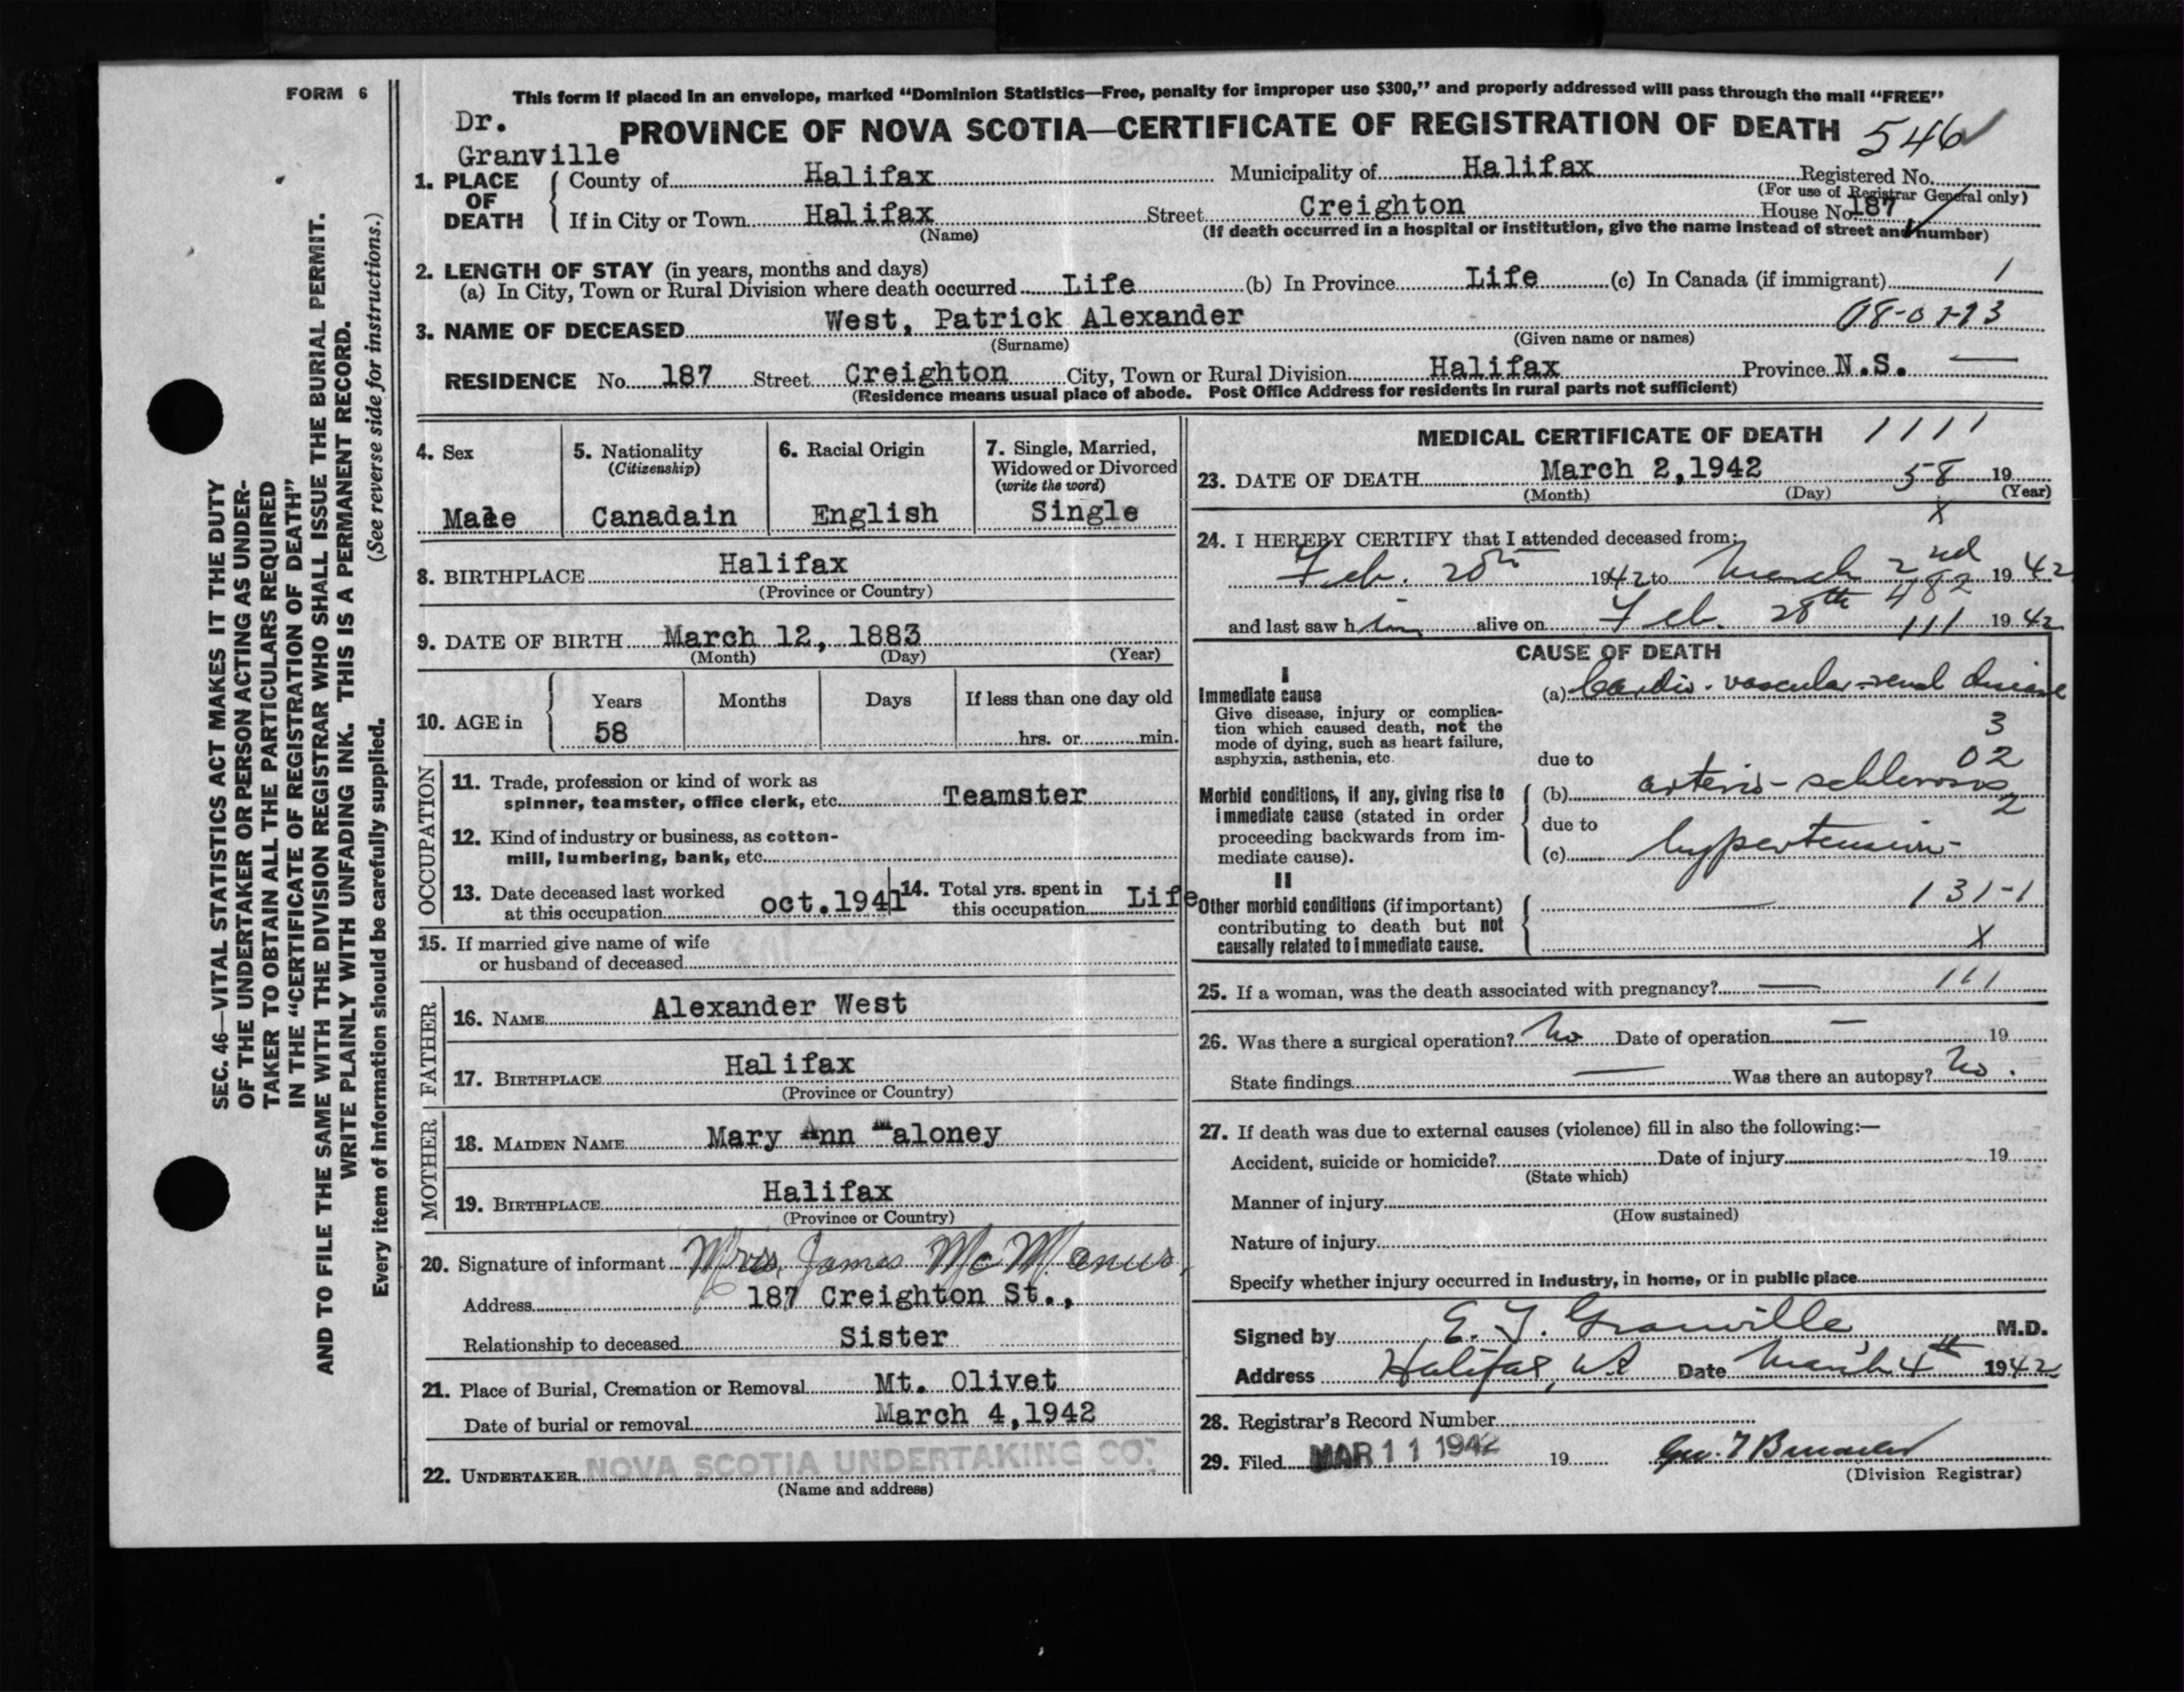 FORM 6
This form if placed in an envelope, marked “Dominion Statistics—Free, penalty for improper use $300,” and properly addressed will pass through the mail “FREE”
Dr.
Granville
PROVINCE OF NOVA SCOTIA—CERTIFICATE OF REGISTRATION OF DEATH 546
1. PLACE OF DEATH
County of Halifax Municipality of Halifax Registered No.
(For use of Registrar General only)
If in City or Town Halifax Street Creighton House No 187
(Name) (If death occurred in a hospital or institution, give the name instead of street and number)
2. LENGTH OF STAY (in years, months and days)
(a) In City, Town or Rural Division where death occurred Life (b) In Province Life (c) In Canada (if immigrant) 1
3. NAME OF DECEASED West, Patrick Alexander
(Surname) (Given name or names)
RESIDENCE No. 187 Street Creighton City, Town or Rural Division Halifax Province N.S.
(Residence means usual place of abode. Post Office Address for residents in rural parts not sufficient)
4. Sex
Male
5. Nationality
(Citizenship)
Canadain
6. Racial Origin
English
7. Single, Married,
Widowed or Divorced
(write the word)
Single
8. BIRTHPLACE Halifax
(Province or Country)
9. DATE OF BIRTH March 12, 1883
(Month) (Day) (Year)
10. AGE in
Years Months Days If less than one day old
58 hrs. or min.
OCCUPATION
11. Trade, profession or kind of work as
spinner, teamster, office clerk, etc. Teamster
12. Kind of industry or business, as cotton-
mill, lumbering, bank, etc.
13. Date deceased last worked
at this occupation oct.1941
14. Total yrs. spent in
this occupation Life
15. If married give name of wife
or husband of deceased
FATHER
16. NAME Alexander West
17. BIRTHPLACE Halifax
(Province or Country)
MOTHER
18. MAIDEN NAME Mary Ann Maloney
19. BIRTHPLACE Halifax
(Province or Country)
20. Signature of informant Mrs, James McManus,
Address 187 Creighton St.,
Relationship to deceased Sister
21. Place of Burial, Cremation or Removal Mt. Olivet
Date of burial or removal March 4,1942
22. UNDERTAKER NOVA SCOTIA UNDERTAKING CO.
(Name and address)
MEDICAL CERTIFICATE OF DEATH 1111
23. DATE OF DEATH March 2,1942 58 19
(Month) (Day) (Year)
X
24. I HEREBY CERTIFY that I attended deceased from:
Feb. 20th 1942 to March 2nd 1942
482
and last saw h im alive on Feb. 28th 111 1942
CAUSE OF DEATH
I
Immediate cause
Give disease, injury or complica-
tion which caused death, not the
mode of dying, such as heart failure,
asphyxia, asthenia, etc.
(a) Cardio-vascular-renal disease
3
due to 02
Morbid conditions, if any, giving rise to
immediate cause (stated in order
proceeding backwards from im-
mediate cause).
(b) arterio-schlerosis
2
due to
(c) hypertension-
II
Other morbid conditions (if important)
contributing to death but not
causally related to immediate cause.
131-1
X
25. If a woman, was the death associated with pregnancy? — 111
26. Was there a surgical operation? No Date of operation — 19
State findings — Was there an autopsy? No.
27. If death was due to external causes (violence) fill in also the following:—
Accident, suicide or homicide? Date of injury 19
(State which)
Manner of injury
(How sustained)
Nature of injury
Specify whether injury occurred in industry, in home, or in public place
Signed by E. J. Granville M.D.
Address Halifax, N.S Date March 4th 1942
28. Registrar's Record Number
29. Filed MAR 11 1942 19
(Division Registrar)
SEC. 46—VITAL STATISTICS ACT MAKES IT THE DUTY
OF THE UNDERTAKER OR PERSON ACTING AS UNDER-
TAKER TO OBTAIN ALL THE PARTICULARS REQUIRED
IN THE “CERTIFICATE OF REGISTRATION OF DEATH”
AND TO FILE THE SAME WITH THE DIVISION REGISTRAR WHO SHALL ISSUE THE BURIAL PERMIT.
WRITE PLAINLY WITH UNFADING INK. THIS IS A PERMANENT RECORD.
Every item of information should be carefully supplied. (See reverse side for instructions.)